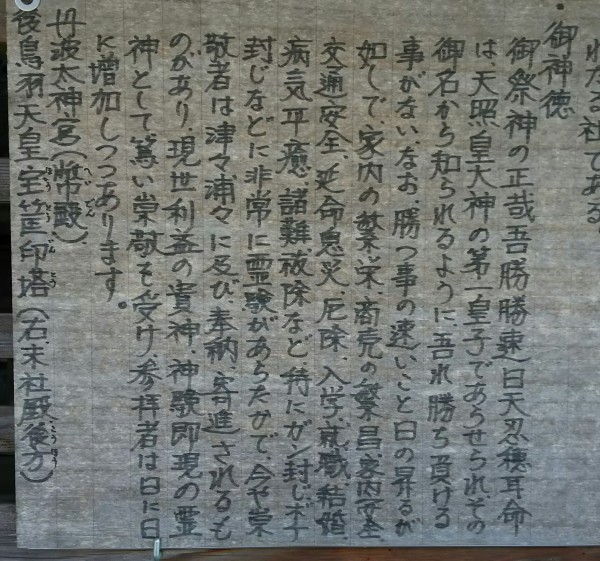 れたる社である。
御神徳
御祭神の正哉吾勝勝速日天忍穂耳命
は、天照皇大神の第一皇子であらせられその
御名から知られるように、吾れ勝ち負ける
事がない、なお、勝つ事の速いこと日の昇るが
如しで、家内の繁栄、商売の繁昌、家内安全、
交通安全、延命息災、厄除、入学、就職、結婚
病気平癒、諸難祓除など特にガン封じボケ
封じなどに非常に霊験があらたかで、今や崇
敬者は津々浦々に及び、奉納、寄進されるも
のがあり、現世利益の貴神、神験即現の霊
神として、篤い崇敬を受け、参拝者は日に日
に増加しつつあります。
丹波太神宮(幣殿)、へいでん
後鳥羽天皇宝筺印塔(右、末社殿後方)ほうきょういんとう こうほう